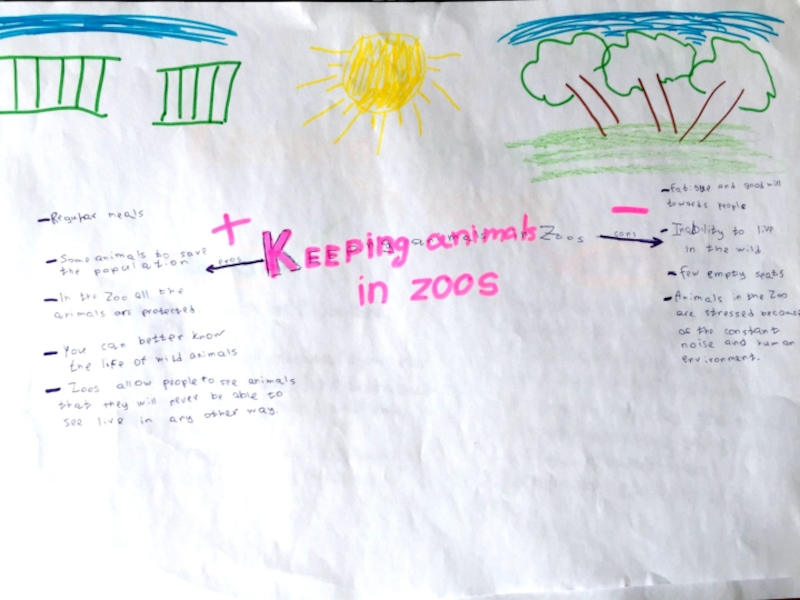 Keeping animals
in zoos
Zoos
+
pros
- Regular meals
- Some animals to save
the population
- In the Zoo all the
animals are protected
- You can better know
the life of wild animals
- Zoos allow people to see animals
that they will never be able to
see live in any other way.
-
cons
- and good will
towards people
- Inability to live
in the wild
- Few empty seats
- Animals in the Zoo
are stressed because
of the constant
noise and human
environment.